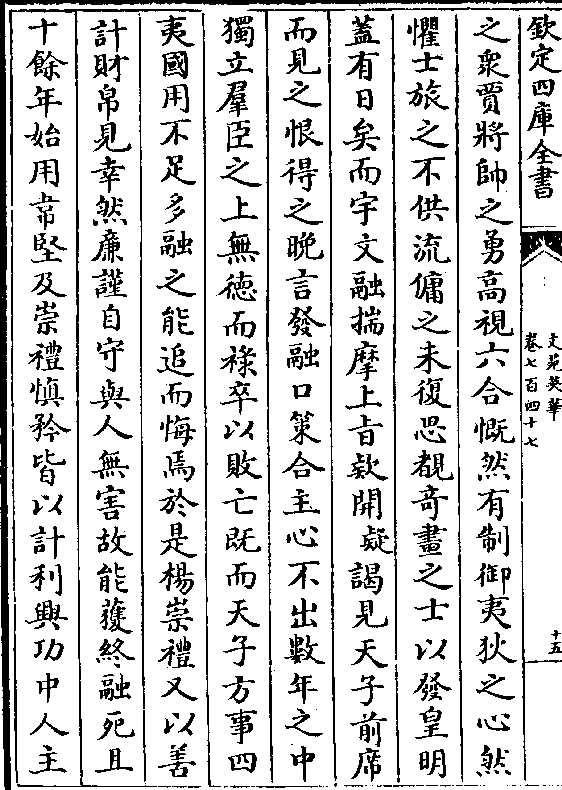 欽定四庫全書
文苑英華
卷七百四十七
十五
之衆賈將帥之勇高視六合慨然有制御夷狄之心然
懼士旅之不供流傭之未復思覩竒畫之士以發皇明
蓋有日矣而宇文融揣摩上㫖欵開疑謁見天子前席
而見之恨得之晚言發融口策合主心不出數年之中
獨立羣臣之上無徳而祿卒以敗亡既而天子方事四
夷國用不足多融之能追而悔焉於是楊崇禮又以善
計財帛見幸然廉謹自守與人無害故能䕶終融死且
十餘年始用韋堅及崇禮慎矜皆以計利興功中人主